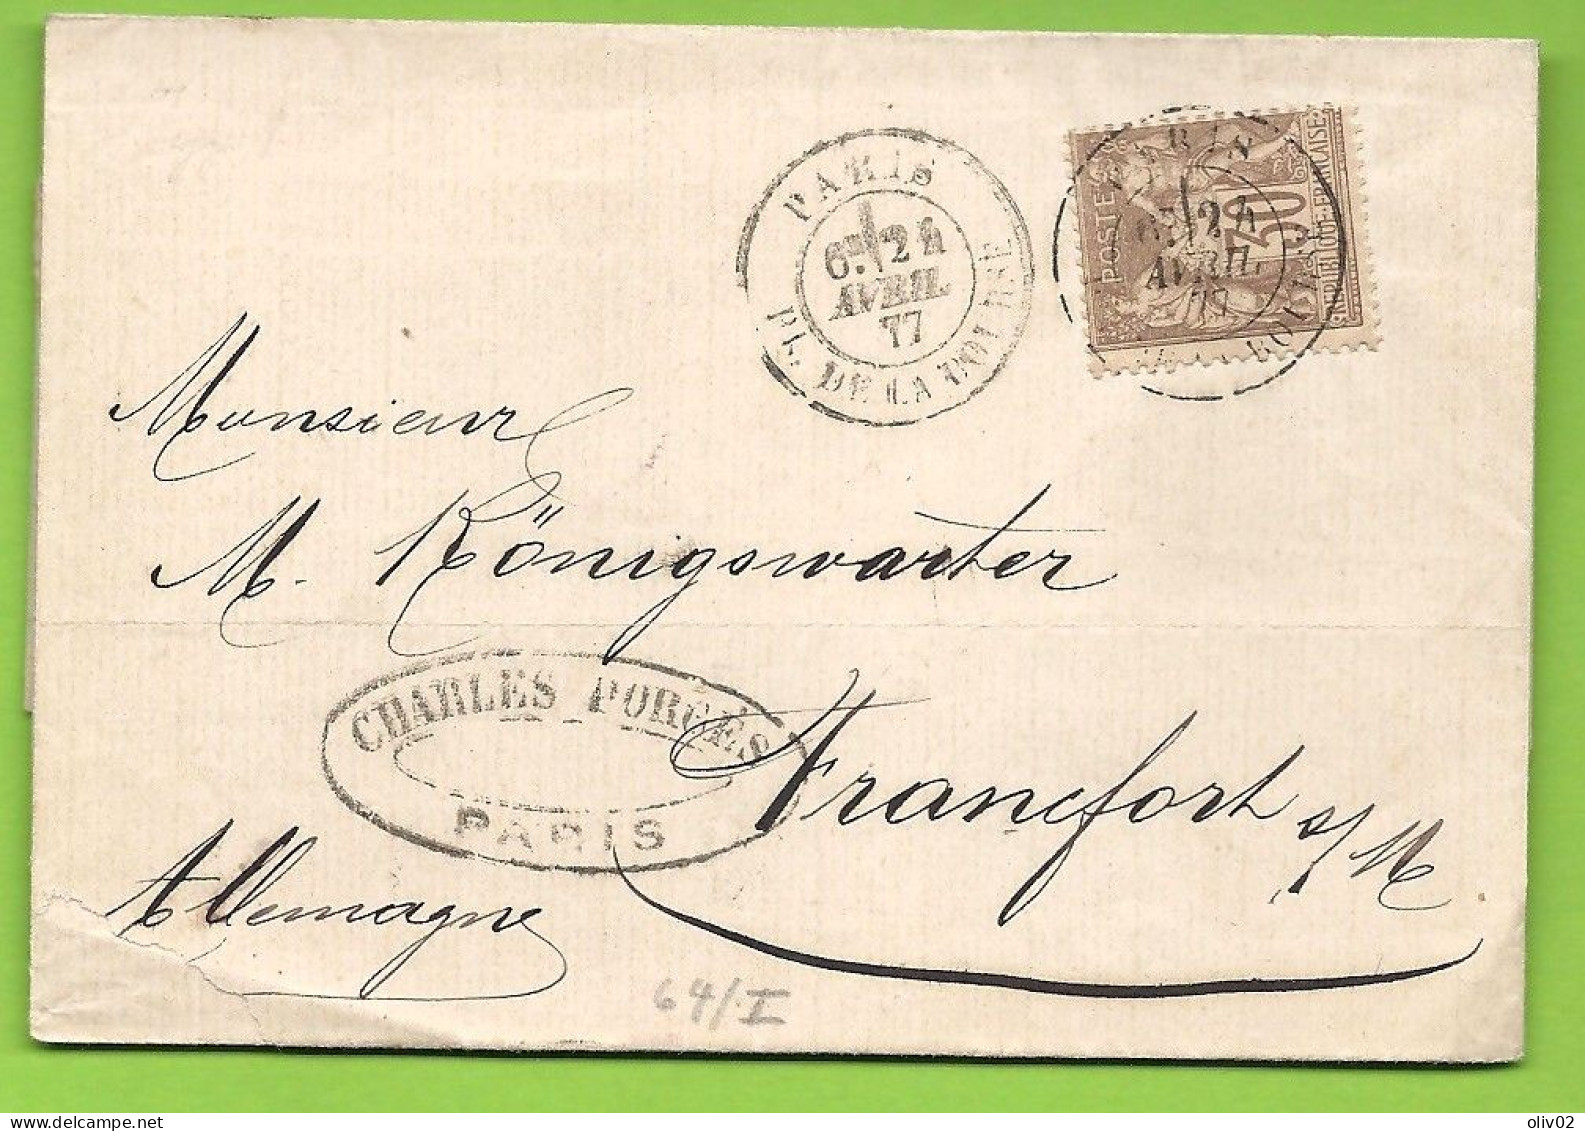 PARIS
6E 24
AVRIL
77
PL. DE LA BOURSE
PARIS
6E 24
AVRIL
77
BOURSE
POSTES
30
REPUBLIQUE FRANÇAISE
Monsieur
M. Königswarter
CHARLES PORGÈS
PARIS
Francfort s/M.
Allemagne
64/I
oliv02